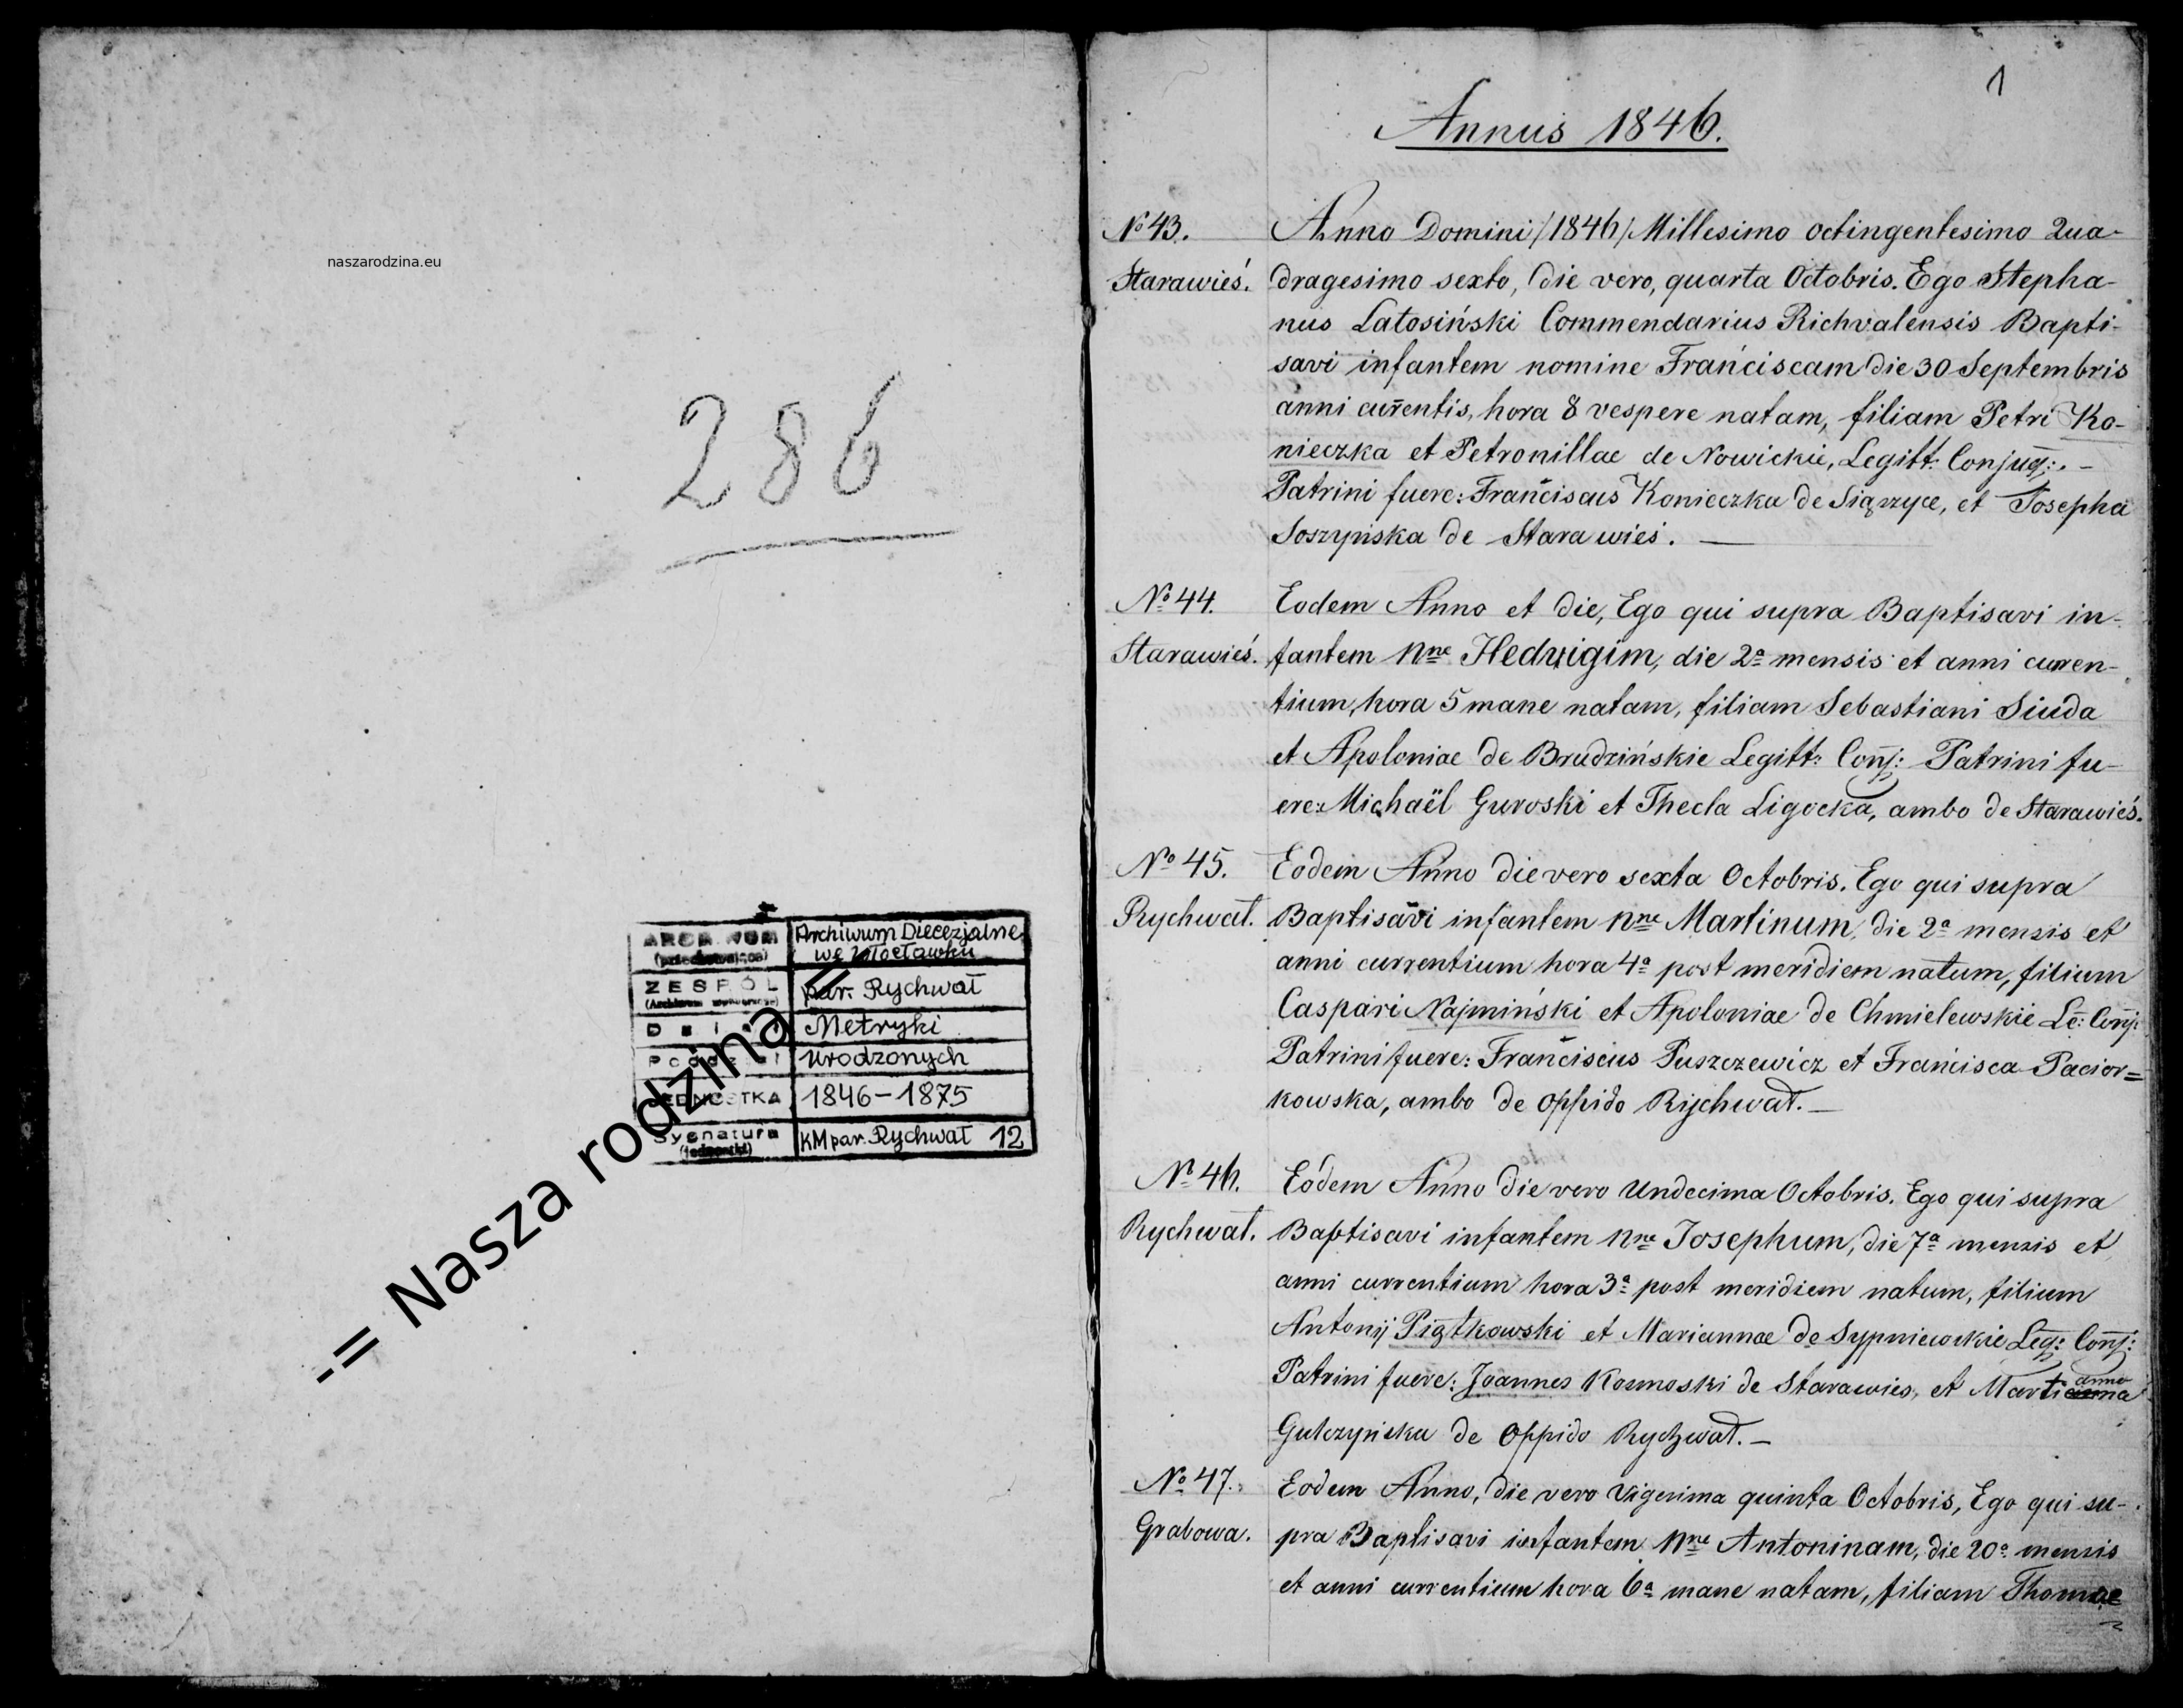 naszarodzina.eu
286
ARCHIWUM
Archiwum Diecezjalne
we Włocławku
ZESPÓŁ
par. Rychwał
Dział
Metryki
urodzonych
JEDNOSTKA
1846-1875
Sygnatura
KM par. Rychwał 12
-= Nasza rodzina =-
1
Annus 1846.
No 43.
Starawieś.
Anno Domini /1846/ Millesimo octingentesimo Qua-
dragesimo sexto, die vero, quarta Octobris. Ego Stepha-
nus Latosiński Commendarius Richvalensis Bapti-
savi infantem nomine Franciscam die 30 Septembris
anni curentis, hora 8 vespere natam, filiam Petri Ko-
nieczka et Petronillae de Nowickie, Legitt: Conjug: . -
Patrini fuere: Franciscus Konieczka de Siąszyce, et Josepha
Soszyńska de Starawieś. —
No 44.
Starawieś.
Eodem Anno et die, Ego qui supra Baptisavi in-
fantem nne Hedvigim, die 2a mensis et anni curren-
tium, hora 5 mane natam, filiam Sebastiani Siuda
et Apoloniae de Brudzińskie Legitt: Conj: Patrini fu-
ere: Michaël Guroski et Thecla Ligocka, ambo de Starawieś.
No 45.
Rychwał.
Eodem Anno die vero sexta Octobris. Ego qui supra
Baptisavi infantem nne Martinum, die 2a mensis et
anni currentium hora 4a post meridiem natum, filium
Caspari Najmiński et Apoloniae de Chmielewskie Le: Conj:
Patrini fuere: Franciscus Puszczewicz et Francisca Pacior=
kowska, ambo de oppido Rychwał. —
No 46.
Rychwał.
Eodem Anno die vero Undecima Octobris. Ego qui supra
Baptisavi infantem nne Josephum, die 7a mensis et
anni currentium hora 3a post meridiem natum, filium
Antonij Piątkowski et Mariannae de Sypniewskie Leg: Conj:
anna
Patrini fuere: Joannes Kosmoski de Starawieś, et
Gulczyńska de Oppido Rychwał. —
No 47.
Grabowa.
Eodem Anno, die vero Vigesima quinta Octobris, Ego qui su-
pra Baptisavi infantem nne Antoninam, die 20a mensis
et anni currentium hora 6a mane natam, filiam Thomae